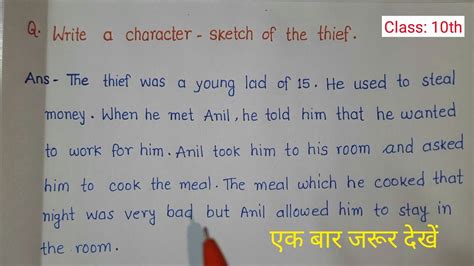 Q. Write a character - sketch of the thief.
Class: 10th
Ans - The thief was a young lad of 15. He used to steal
money. When he met Anil, he told him that he wanted
to work for him. Anil took him to his room and asked
him to cook the meal. The meal which he cooked that
night was very bad but Anil allowed him to stay in
the room.
एक बार जरूर देखें